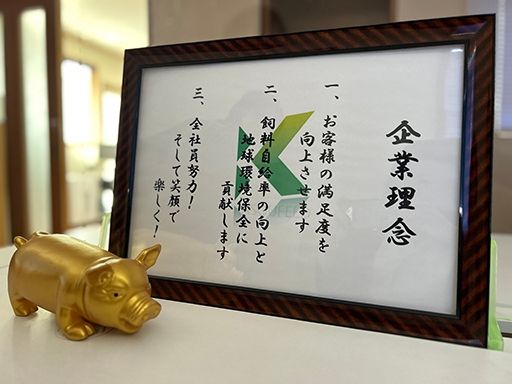 企業理念
一、お客様の満足度を
向上させます
二、飼料自給率の向上と
地球環境保全に
貢献します
三、全社員努力！
そして笑顔で
楽しく！
K